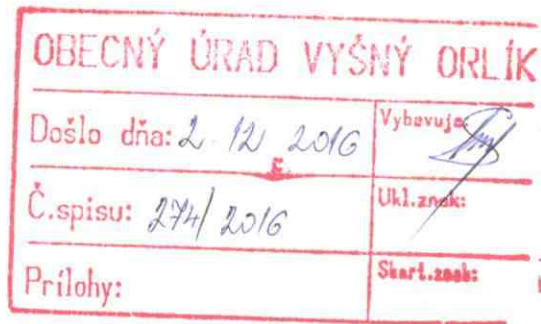 OBECNÝ ÚRAD VYŠNÝ ORLÍK
Došlo dňa: 2. 12 2016
Vybavuje:
Č.spisu: 274/2016
Ukl.znak:
Prílohy:
Skart.znak: